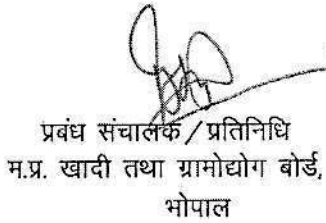 प्रबंध संचालक / प्रतिनिधि
म.प्र. खादी तथा ग्रामोद्योग बोर्ड,
भोपाल